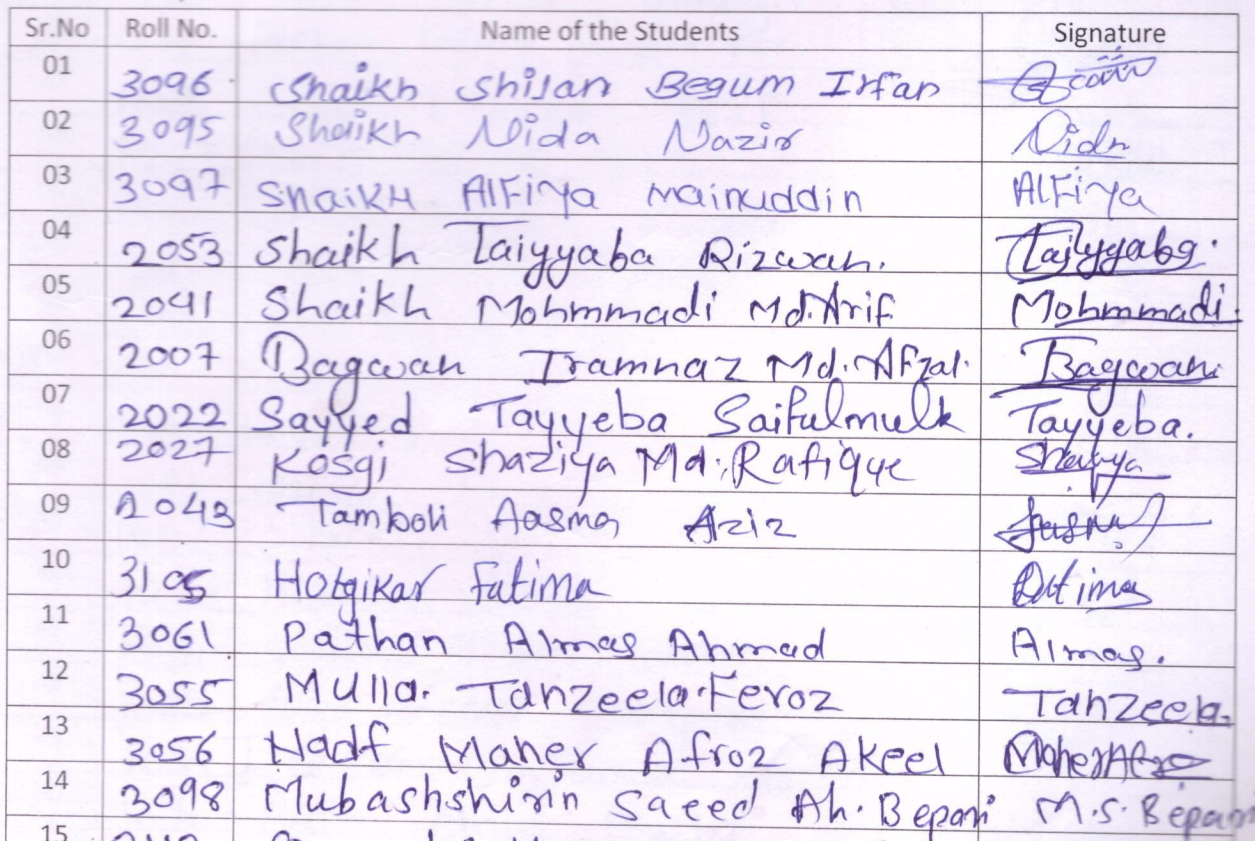 Sr.No Roll No. Name of the Students Signature
01 3096 Shaikh Shilan Begum Irfan
02 3095 Shaikh Nida Nazir Nida
03 3097 Shaikh AlFiya Mainuddin AlFiya
04 2053 Shaikh Taiyyaba Rizwan. Taiyyaba.
05 2041 Shaikh Mohmmadi Md.Arif Mohmmadi.
06 2007 Bagwan Iramnaz Md.Afzal. Bagwan
07 2022 Sayyed Tayyeba Saifulmulk Tayyeba.
08 2027 Kosgi Shaziya Md.Rafique
09 2043 Tamboli Aasma Aziz
10 3105 Hotgikar Fatima Fatima
11 3061 Pathan Almas Ahmad Almas.
12 3055 Mulla. Tanzeela.Feroz Tanzeela.
13 3056 Nadf Maher Afroz Akeel
14 3098 Mubashshirin Saeed Ah. Bepari M.S. Bepari
15